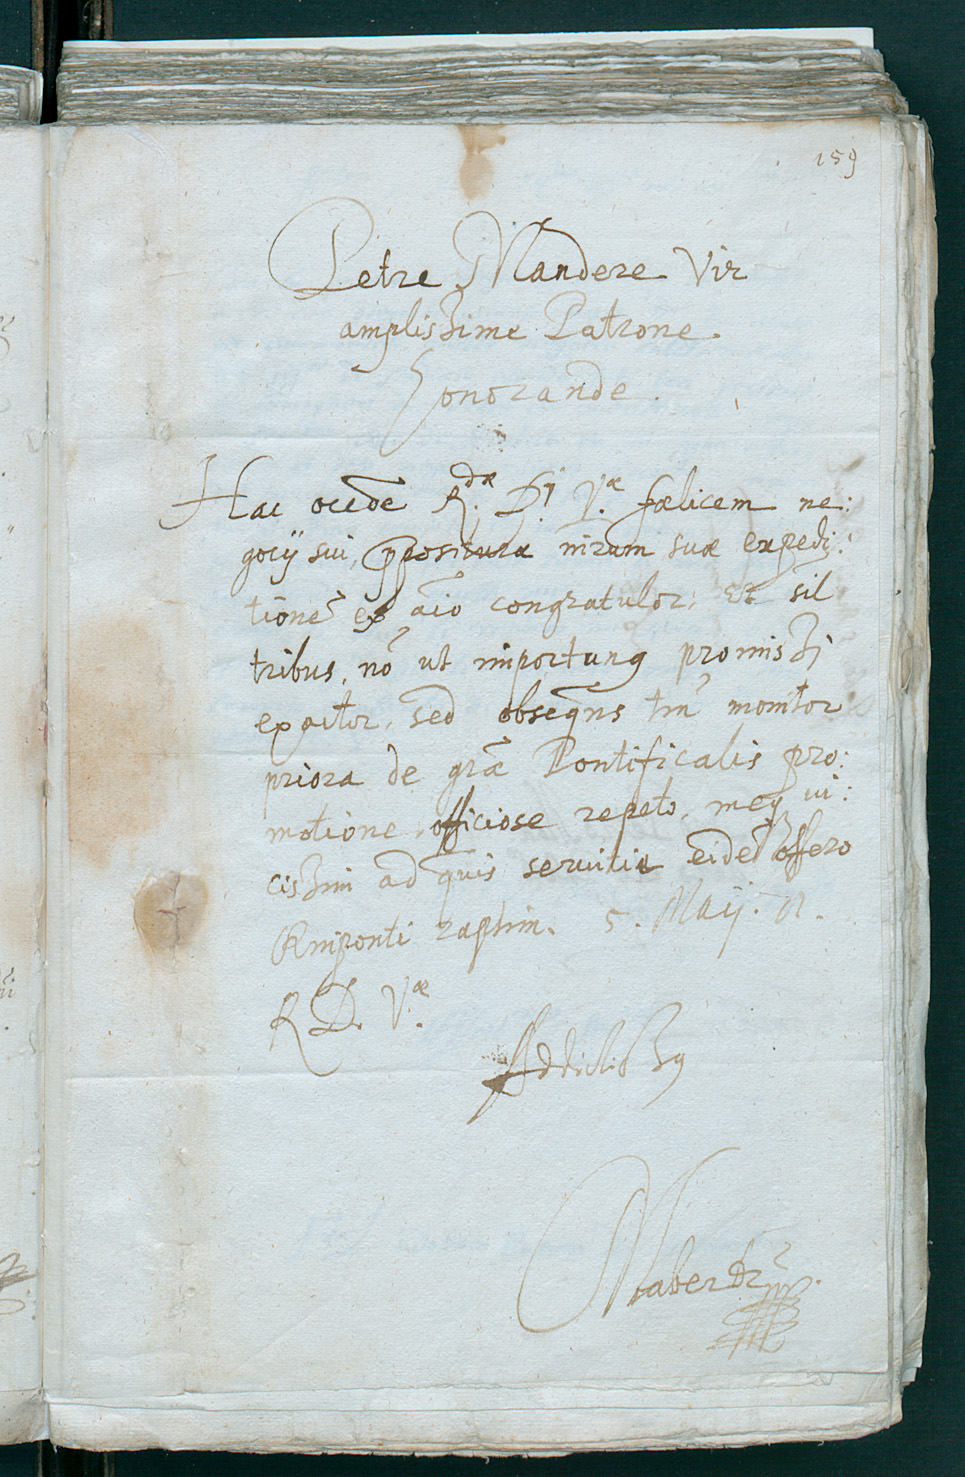 159
Petre Mandere Vir
amplissime Patrone
honorande.
Hac occõe R.dæ D. V.æ fœlicem ne:
gocij sui, ppositura nirum suæ expedi:
tionẽ ex aĩo congratulor, et sil
tribus, nõ ut importunꝰ promissi
exactor, sed obseqns tm monitor
priora de grã Pontificalis pro:
motione officiose repeto, meqꝫ vi:
cissim ad quis servitia eidẽ offero
Rmiponti raptim. 5. Maij.
R D. V.æ
Addictissꝰ
Maber